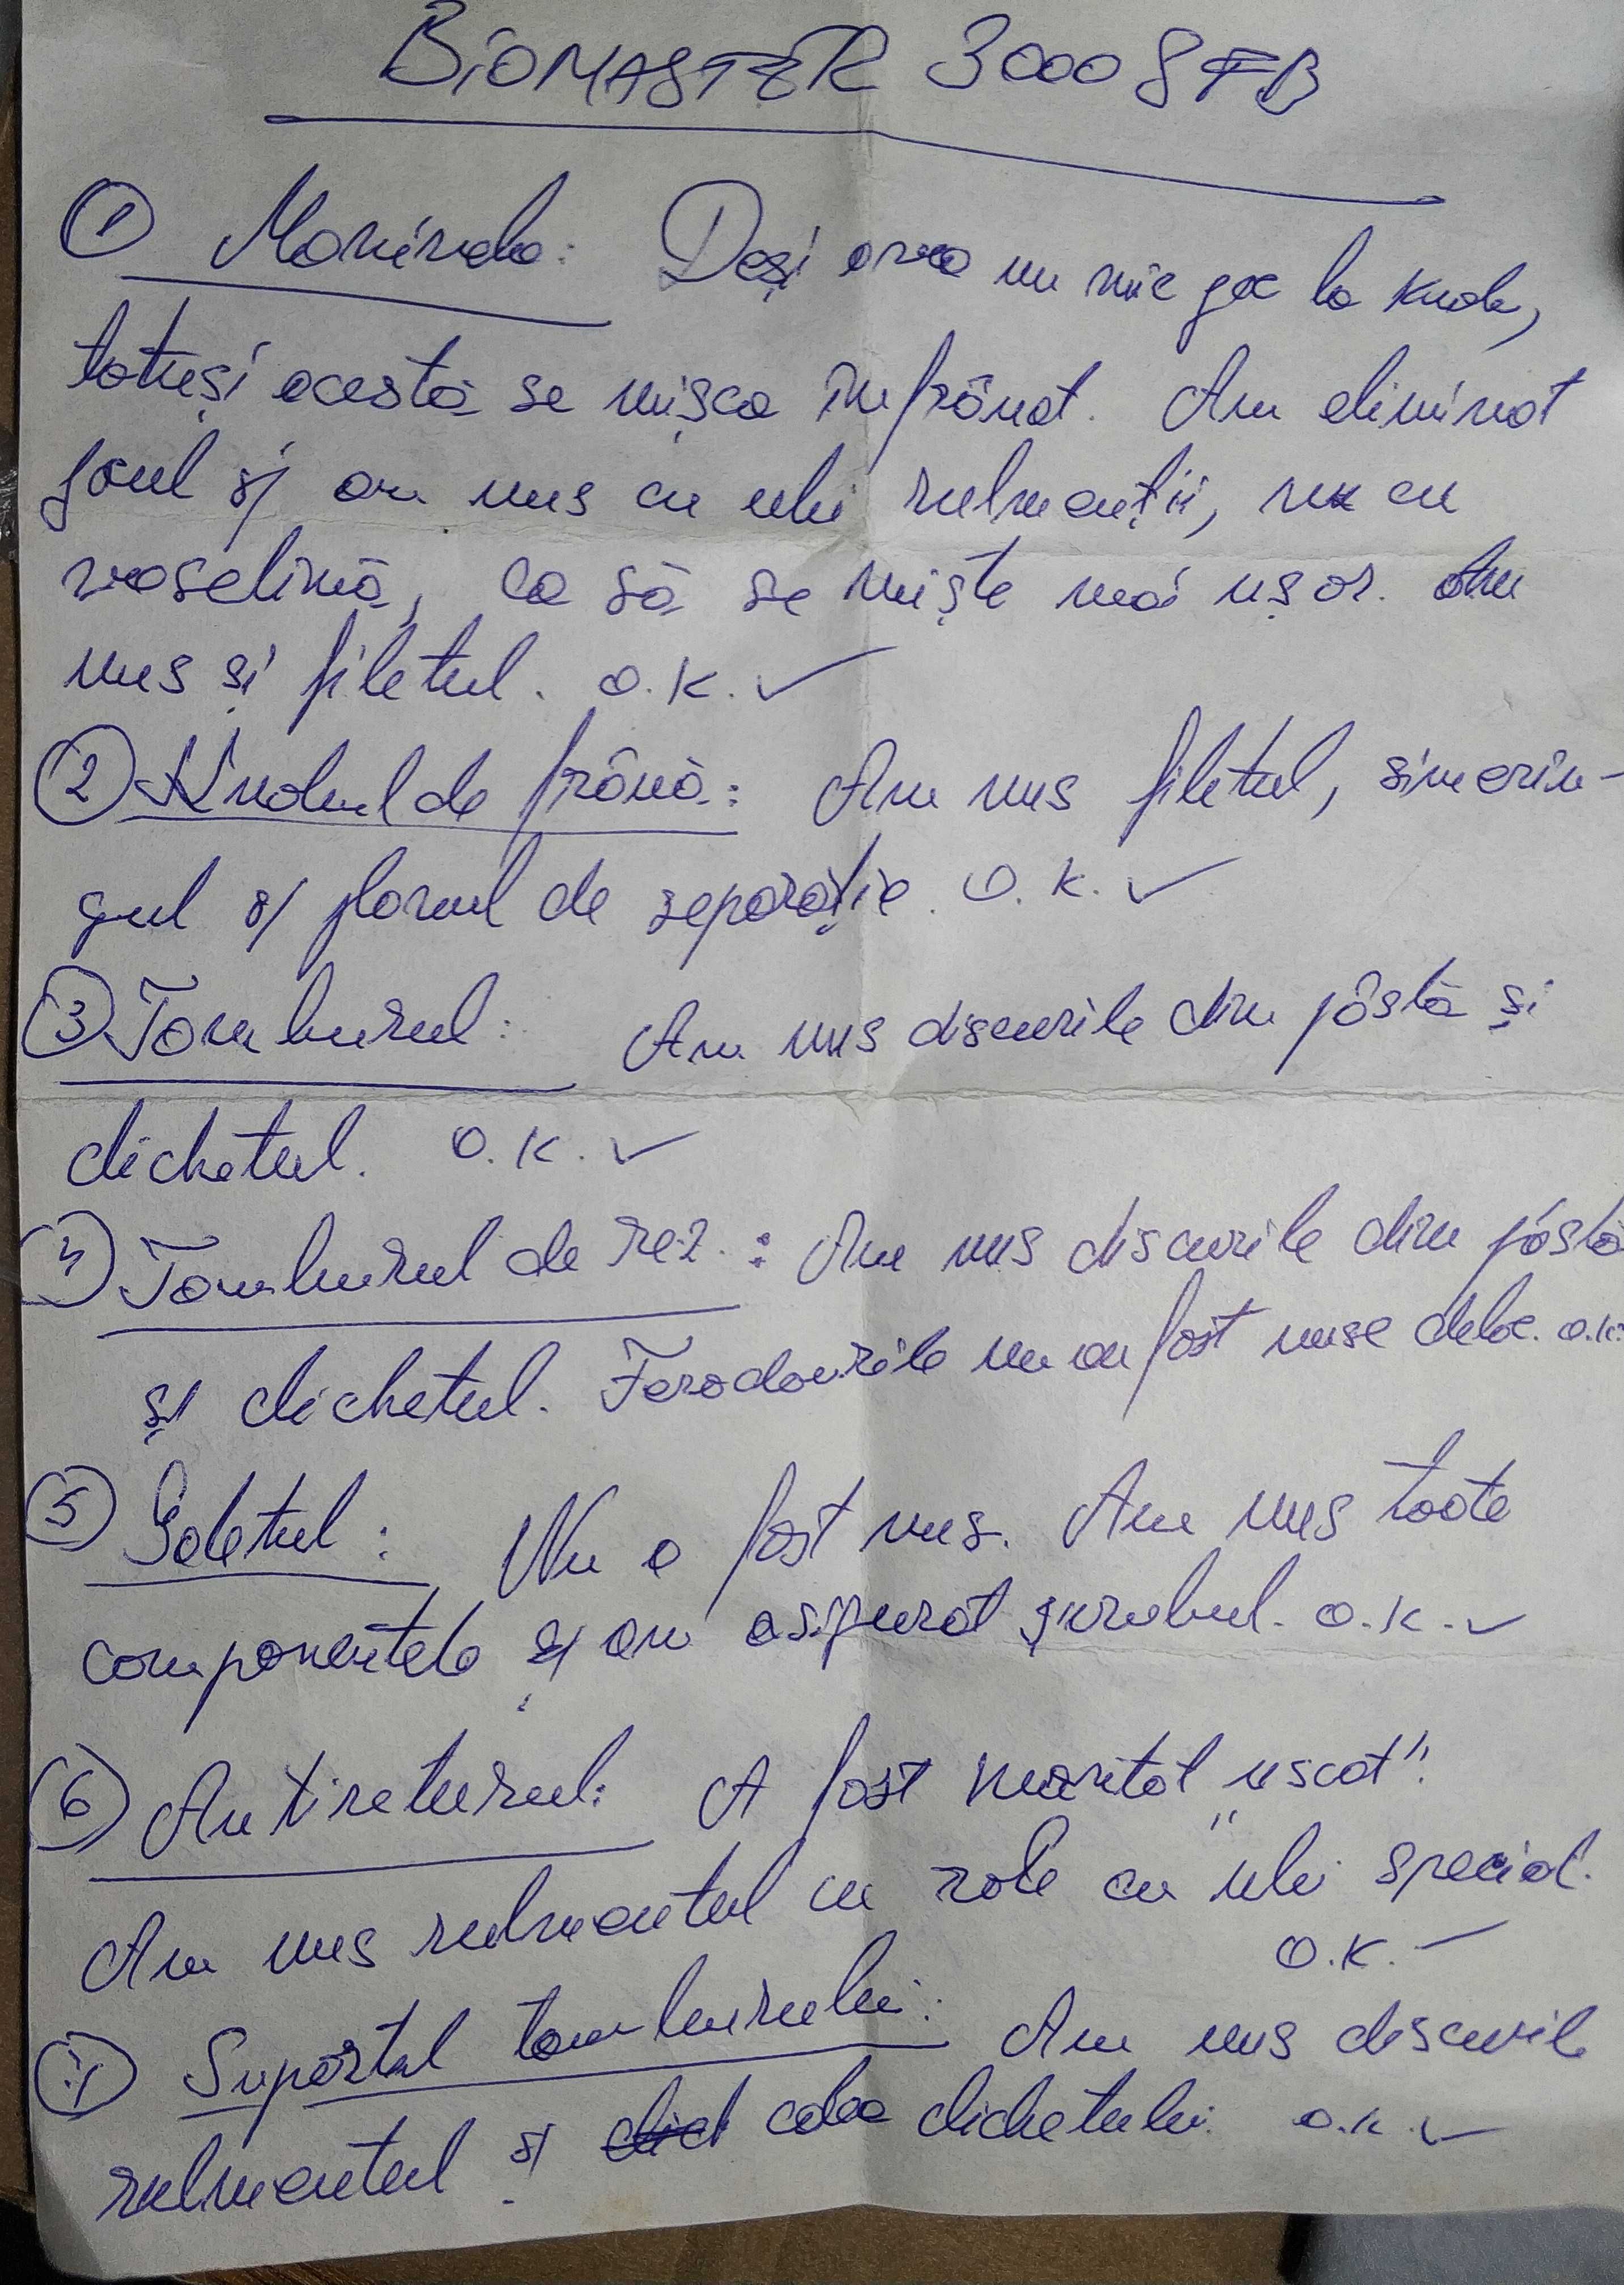 BIOMASTER 3000 SFB
① Manivela: Deși avea un mic joc la knob,
totuși acesta se mișca înfrânat. Am eliminat
jocul și am uns cu ulei rulmenții, nu cu
vaselină, ca să se miște mai ușor. Am
uns și filetul. O.K. ✓
② Knobul de frână: Am uns filetul, simerin-
gul și platoul de separație. O.K. ✓
③ Tamburul: Am uns discurile din pâslă și
clichetul. O.K. ✓
④ Tamburul de rez.: Am uns discurile din pâslă
și clichetul. Ferodourile nu au fost unse deloc. O.K.
⑤ Galetul: Nu a fost uns. Am uns toate
componentele și am asigurat șurubul. O.K. ✓
⑥ Antireturul: A fost montat „uscat".
Am uns rulmentul cu role cu ulei special.
O.K. –
⑦ Suportul tamburului: Am uns discurile
rulmentul și calea clichetului. O.K. ✓